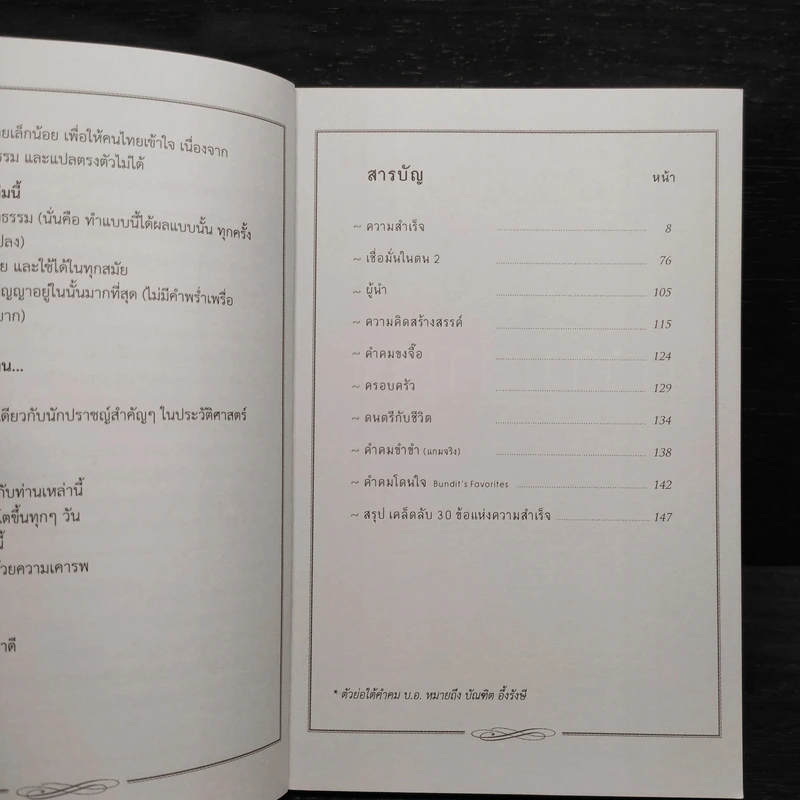 ยเล็กน้อย เพื่อให้คนไทยเข้าใจ เนื่องจาก
รรม และแปลตรงตัวไม่ได้
มนี้
ธรรม (นั่นคือ ทำแบบนี้ได้ผลแบบนั้น ทุกครั้ง
ปลง)
ย และใช้ได้ในทุกสมัย
ญญาอยู่ในนั้นมากที่สุด (ไม่มีคำพร่ำเพรื่อ
ยาก)
น...
เดียวกับนักปราชญ์สำคัญๆ ในประวัติศาสตร์
กับท่านเหล่านี้
ตขึ้นทุกๆ วัน
นี้
วยความเคารพ
าดี
สารบัญ หน้า
~ ความสำเร็จ 8
~ เชื่อมั่นในตน 2 76
~ ผู้นำ 105
~ ความคิดสร้างสรรค์ 115
~ คำคมขงจื๊อ 124
~ ครอบครัว 129
~ ดนตรีกับชีวิต 134
~ คำคมขำขำ (แถมจริง) 138
~ คำคมโดนใจ Bundit's Favorites 142
~ สรุป เคล็ดลับ 30 ข้อแห่งความสำเร็จ 147
* ตัวย่อใต้คำคม บ.อ. หมายถึง บัณฑิต อึ้งรังษี